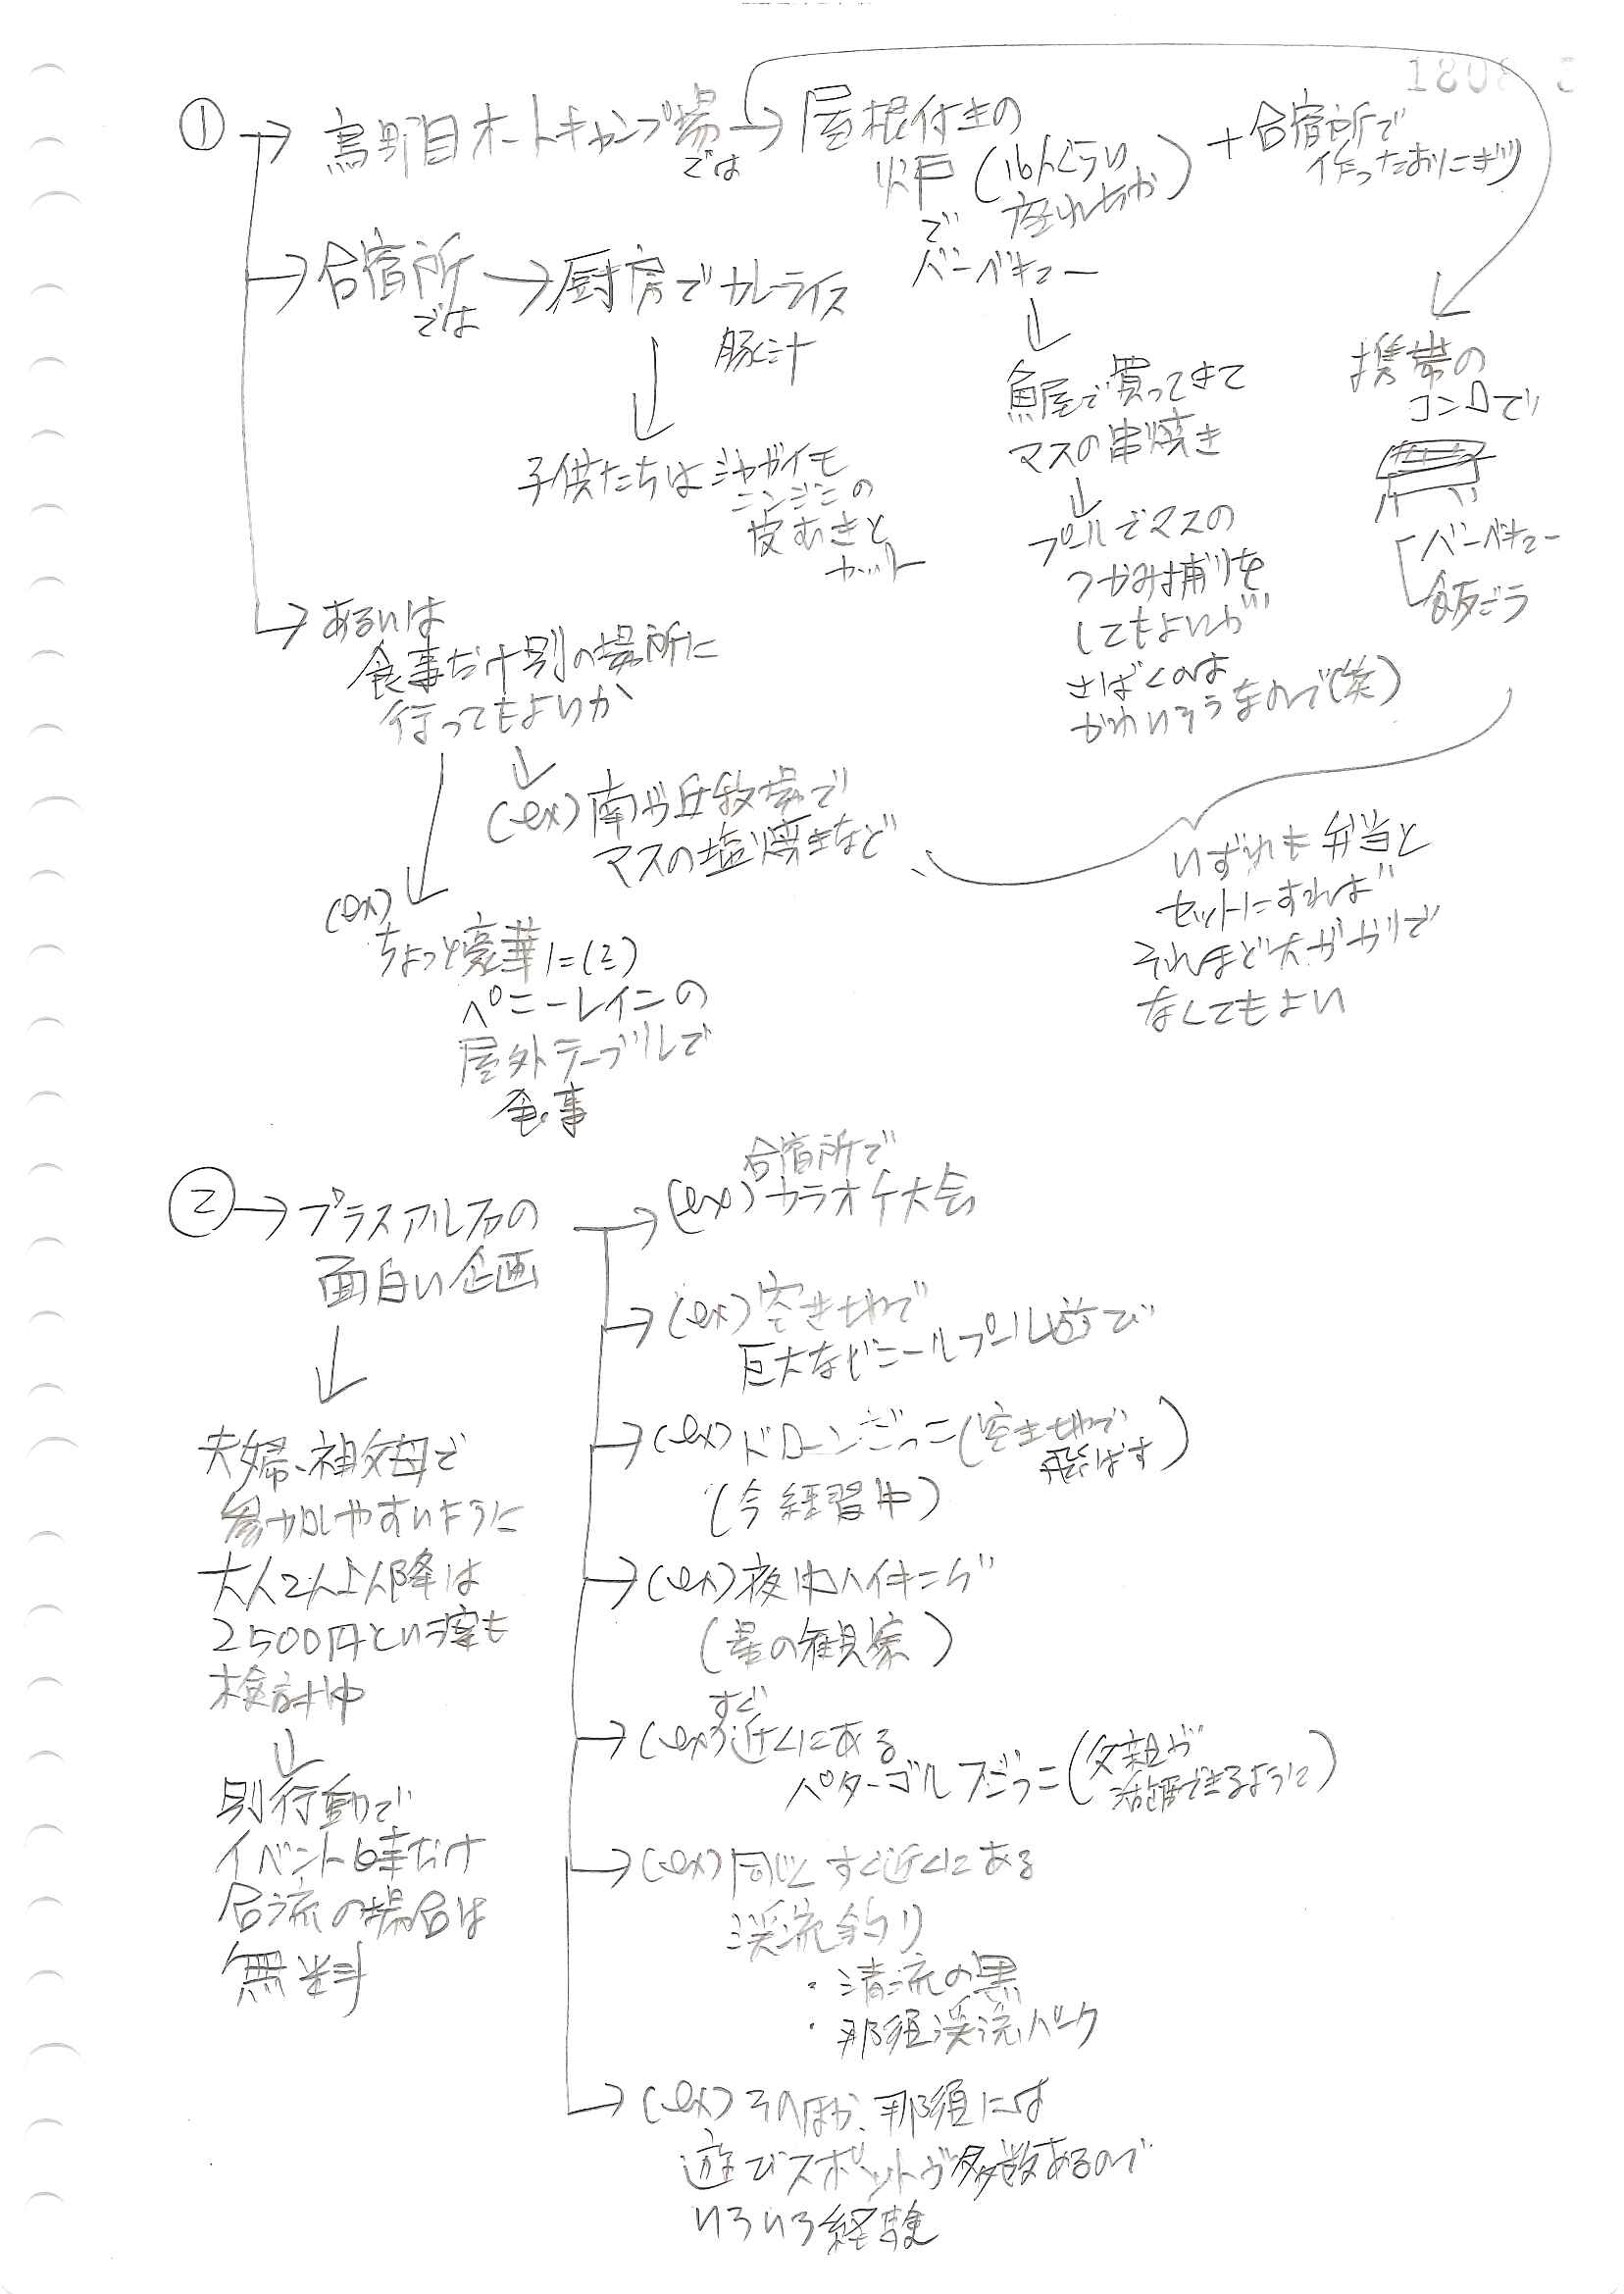 ①→鳥野目オートキャンプ場では→屋根付きの
炉(16人ぐらい
座れるか)
で
バーベキュー
+合宿所で
作ったおにぎり
→合宿所では→厨房でカレーライス
豚汁
子供たちはジャガイモ
ニンジンの
皮むきと
カット
魚屋で買ってきて
マスの串焼き
プールでマスの
つかみ捕りを
してもよいが
さばくのは
かわいそうなので(笑)
携帯の
コンロで
バーベキュー
飯ごう
→あるいは
食事だけ別の場所に
行ってもよいか
(ex)南が丘牧場で
マスの塩焼きなど
(ex)
ちょっと豪華に(?)
ペニーレインの
屋外テーブルで
食事
いずれも弁当と
セットにすれば
それほど大がかりで
なくてもよい
②→プラスアルファの
面白い企画
夫婦、祖父母で
参加しやすいように
大人2人以降は
2500円という案も
検討中
別行動で
イベント時だけ
合流の場合は
無料
合宿所で
→(ex)カラオケ大会
→(ex)空き地で
巨大なビニールプール遊び
→(ex)ドローンごっこ(空き地で
飛ばす)
(今練習中)
→(ex)夜中ハイキング
(星の観察)
すぐ
→(ex)近くにある
パターゴルフごっこ(父親が
活躍できるように)
→(ex)同じくすぐ近くにある
渓流釣り
・清流の里
・那須渓流パーク
→(ex)そのほか、那須には
遊びスポットが多数あるので
いろいろ経験